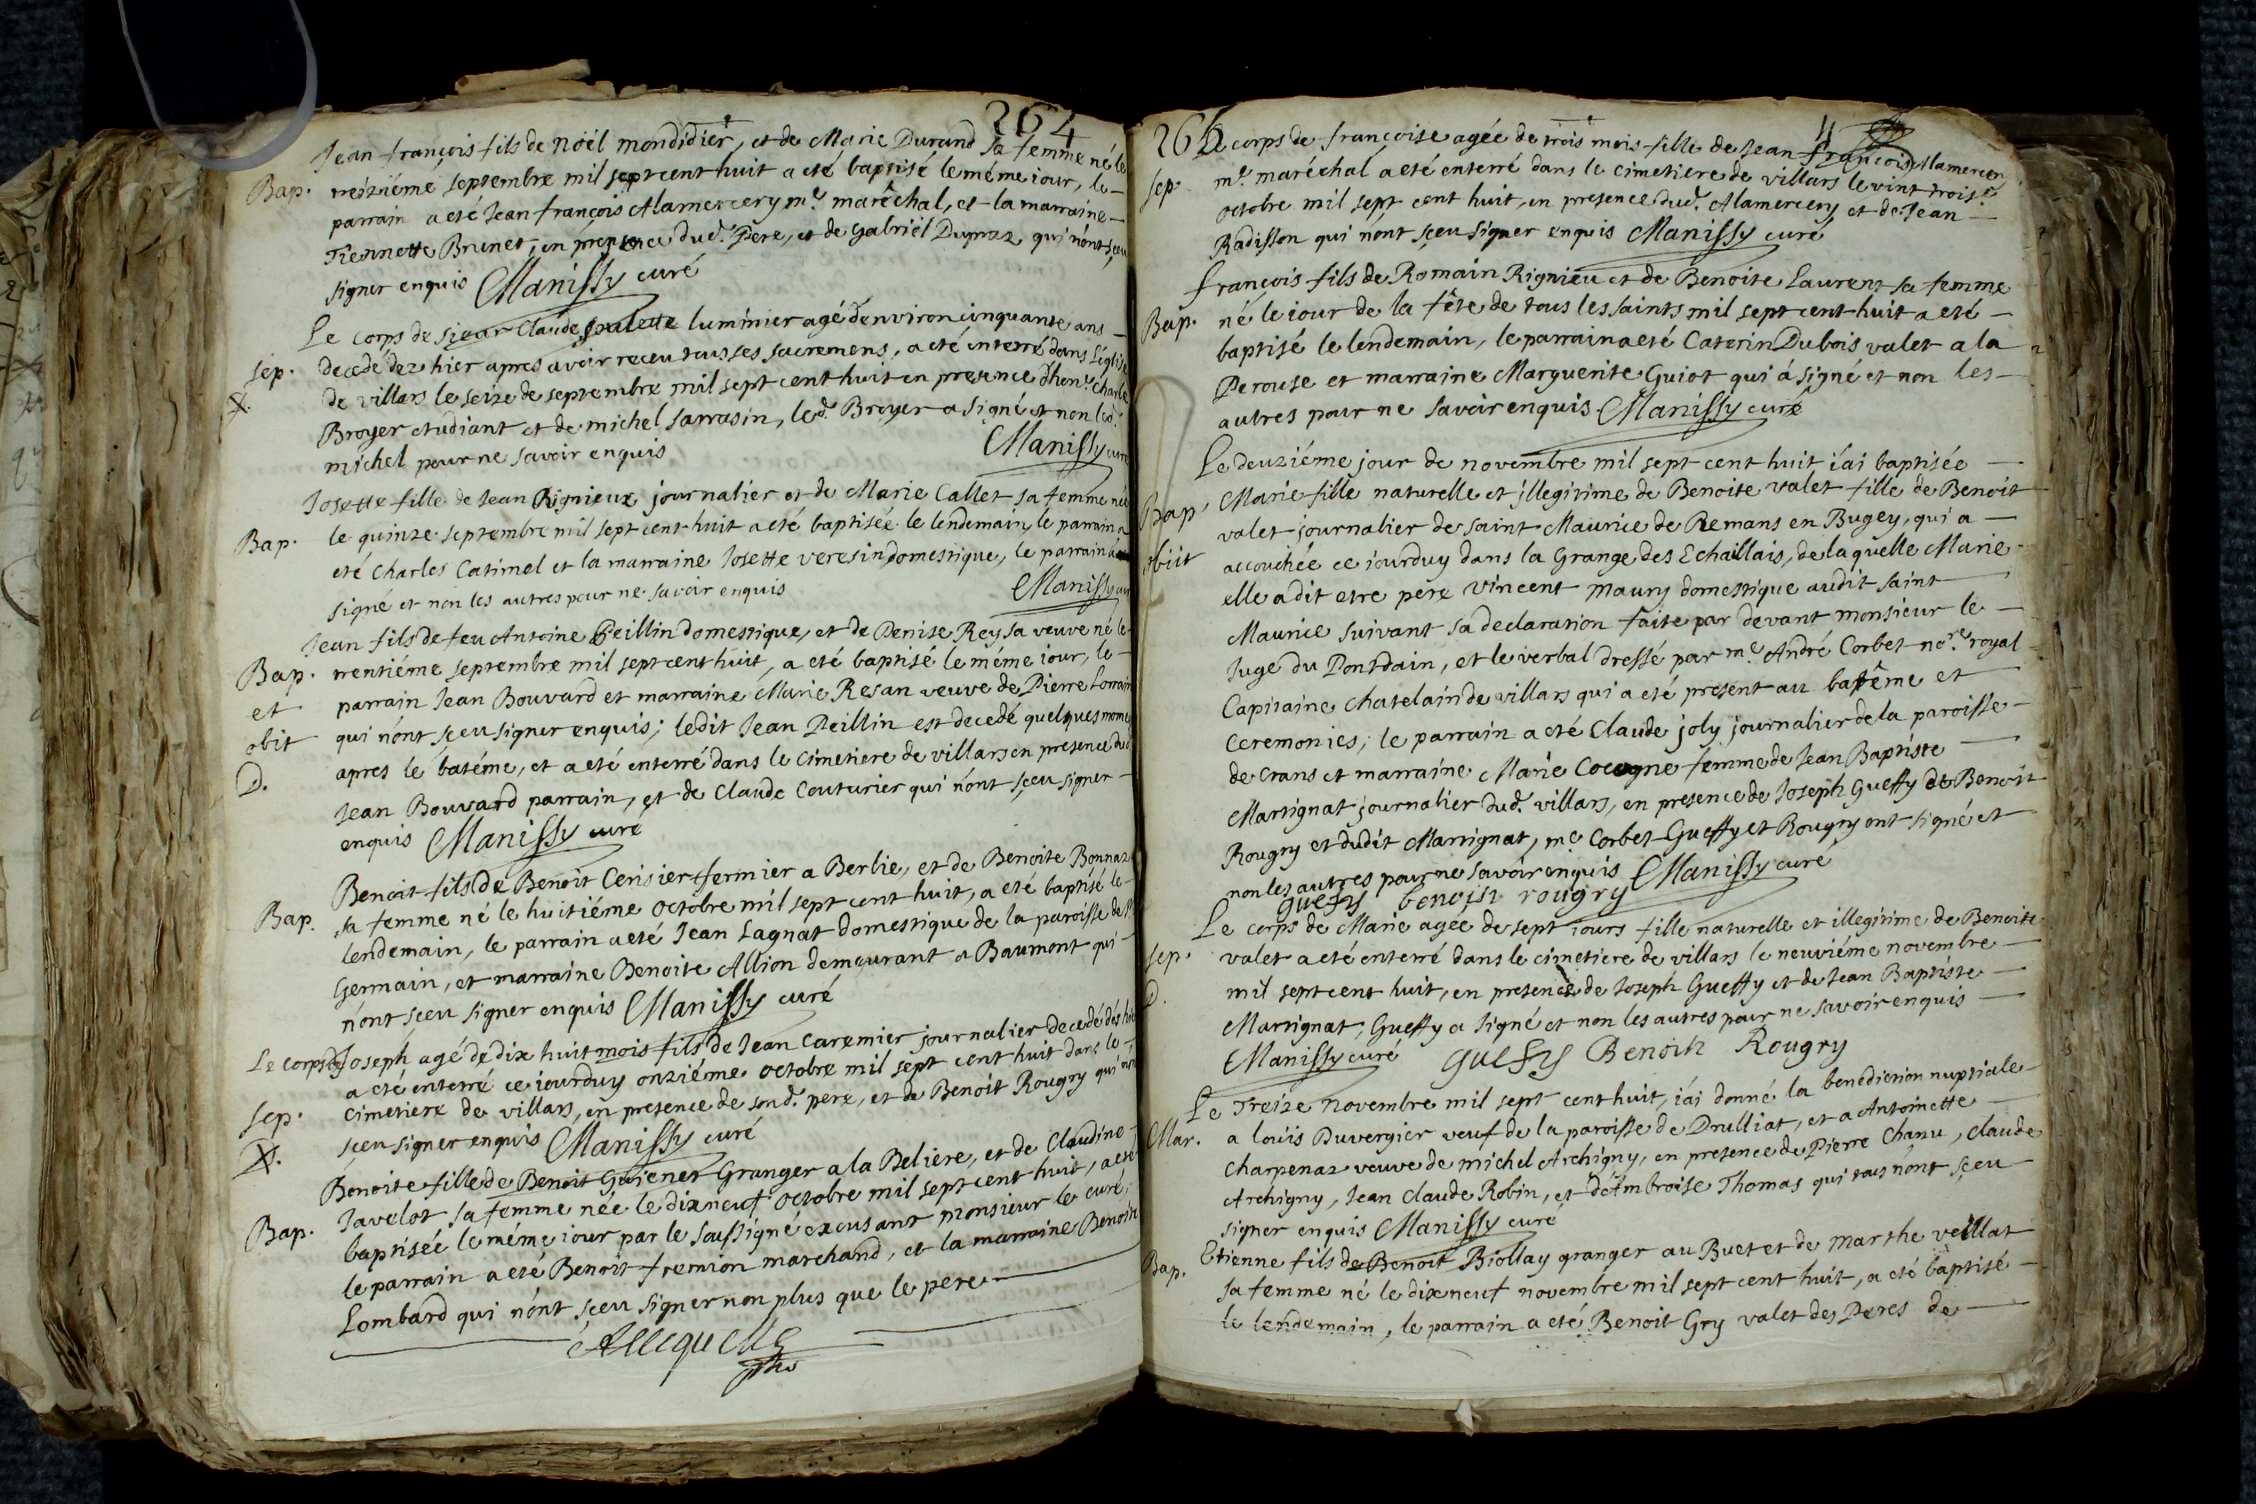 264
Jean françois fils de Noël mondidier, et de Marie Durand sa femme né le
Bap. treiziéme septembre mil sept cent huit a eté baptisé le méme iour, le
parrain a eté Jean françois Alamercery mᵉ. maréchal, et la marraine
Tiennette Brunet, en presence dud. Pere, et de Gabriël Dupraz qui n'ont sçeu
signer enquis Manissy curé
Le corps de sieur Claude luminier agé d'environ cinquante ans
sep. decedé dez hier apres avoir receu tous ses sacremens, a eté enterré dans l'église
de villars le seize de septembre mil sept cent huit en presence dhon. Charle
Broyer etudiant et de michel sarrasin, led. Broyer a signé et non led.
michel pour ne savoir enquis Manissy curé
Josette fille de Jean Rignieux journalier et de Marie Callet sa femme née
Bap. le quinze septembre mil sept cent huit a eté baptisée le lendemain, le parrain a
eté Charles Catimel et la marraine Josette veresin domestique, le parrain a
signé et non les autres pour ne savoir enquis Manissy curé
Jean fils de feu Antoine Peillin domestique, et de Denise Rey sa veuve né le
Bap. trentiéme septembre mil sept cent huit, a eté baptisé le méme iour, le
et parrain Jean Bouvard et marraine Marie Resan veuve de Pierre Lorrain
obit qui n'ont sçeu signer enquis; ledit Jean Peillin est decedé quelques mome
D. apres le batéme, et a eté enterré dans le cimetiere de villars en presence dud
Jean Bouvard parrain, et de Claude Couturier qui n'ont sçeu signer
enquis Manissy curé
Benoit fils de Benoit Cerisier fermier a Berlie, et de Benoite Bonnaz
Bap. sa femme né le huitiéme octobre mil sept cent huit, a eté baptisé le
lendemain, le parrain a eté Jean Lagnat domestique de la paroisse de St
Germain, et marraine Benoite Allion demeurant a Baumont qui
n'ont sçeu signer enquis Manissy curé
Le corps de Joseph agé de dix huit mois fils de Jean Caremier journalier decedé dés hier
a eté enterré ce iourduy onziéme octobre mil sept cent huit dans le
sep. cimetiere de villars, en presence de sond. pere, et de Benoit Rougry qui n'ont
sçeu signer enquis Manissy curé
Benoite fille de Benoit Guienet Granger a la Beliere, et de Claudine
Bap. Javelot sa femme née le dixneuf octobre mil sept cent huit, a eté
baptisée le méme iour par le soussigné excusant monsieur le curé,
le parrain a eté Benoit fremion marchand, et la marraine Benoite
Lombard qui n'ont sçeu signer non plus que le pere
265 4
Le corps de françoise agée de trois mois fille de Jean françois Alamercery
sep. mᵉ. maréchal a eté enterré dans le cimetiere de villars le vint trois.ᵉ
octobre mil sept cent huit, en presence dud. Alamercery et de Jean
Radisson qui n'ont sçeu signer enquis Manissy curé
françois fils de Romain Rignieu et de Benoite Laurent sa femme
Bap. né le iour de la fête de tous les saints mil sept cent huit a eté
baptisé le lendemain, le parrain a eté Caterin Dubois valet a la
Perouse et marraine Marguerite Guiot qui á signé et non les
autres pour ne savoir enquis Manissy curé
Le deuziéme jour de novembre mil sept cent huit i'ai baptisée
Bap Marie fille naturelle et illegitime de Benoite valet fille de Benoit
valet journalier de saint Maurice de Remans en Bugey, qui a
obiit accouchée ce iourduy dans la Grange des Echaillais, de laquelle Marie
elle a dit etre pere Vincent Maury domestique audit saint
Maurice suivant sa declaration faite par devant monsieur le
Juge du Pontdain, et le verbal dressé par mᵉ. André Corbet noʳᵉ royal
Capitaine chatelain de villars qui a eté present au batême et
ceremonies; le parrain a eté Claude joly journalier de la paroisse
de Crans et marraine Marie Cocogne femme de Jean Baptiste
Martignat journalier dud. villars, en presence de Joseph Gueffy de Benoit
Rougry et dudit Martignat, mᵉ Corbet Gueffy et Rougry ont signé et
non les autres pour ne savoir enquis Manissy curé
guefy benoist rougry
Le corps de Marie agée de sept iours fille naturelle et illegitime de Benoite
sep. valet a eté enterré dans le cimetiere de villars le neuviéme novembre
D. mil sept cent huit, en presence de Joseph Gueffy et de Jean Baptiste
Martignat, Gueffy a signé et non les autres pour ne savoir enquis
Manissy curé guefy Benoih Rougry
Le Treize novembre mil sept cent huit, i'ai donné la benediction nuptiale
Mar. a loüis Duvergier veuf de la paroisse de Drulliat, et a Antoinette
Charpenaz veuve de michel Archigny, en presence de Pierre Chanu, claude
Archigny, Jean Claude Robin, et d'Ambroise Thomas qui tous n'ont sçeu
signer enquis Manissy curé
Bap. Etienne fils de Benoit Biollay granger au Buet et de marthe veillat
sa femme né le dixneuf novembre mil sept cent huit, a eté baptisé
le lendemain, le parrain a eté Benoit Gry valet des Peres de